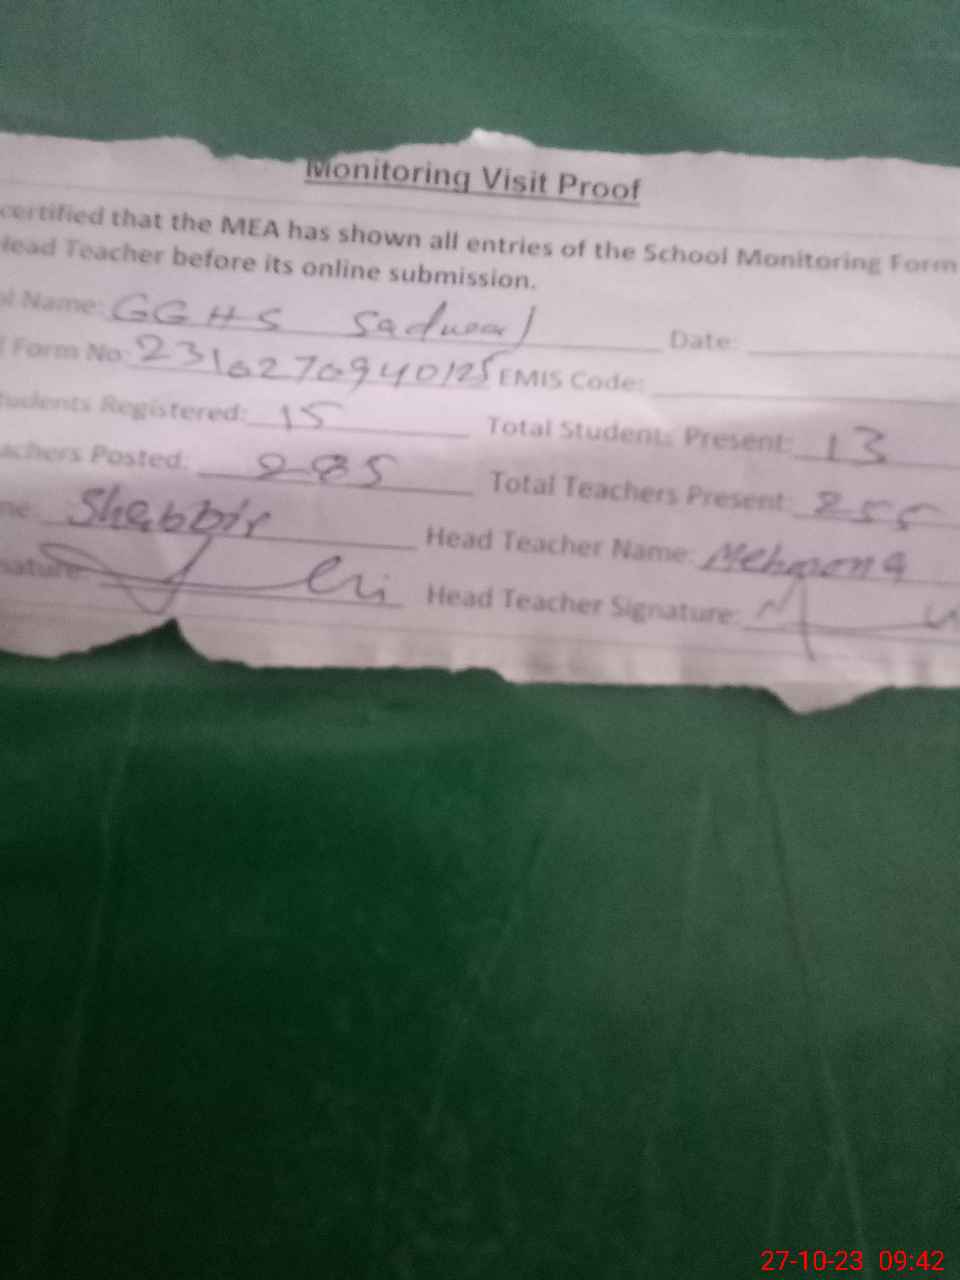 Monitoring Visit Proof
certified that the MEA has shown all entries of the School Monitoring Form
Head Teacher before its online submission.
Name: GGHS Sadwal Date:
Form No: 231027094012 EMIS Code:
Students Registered: 15 Total Students Present: 13
Teachers Posted: 285 Total Teachers Present: 255
Shabbir Head Teacher Name:
Head Teacher Signature:
27-10-23 09:42